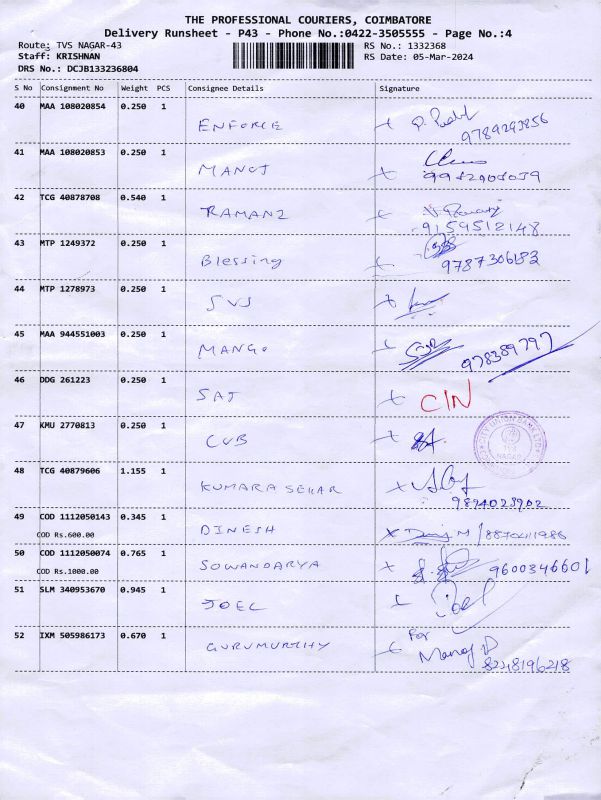 THE PROFESSIONAL COURIERS, COIMBATORE
Delivery Runsheet - P43 - Phone No.:0422-3505555 - Page No.:4
Route: TVS NAGAR-43 RS No.: 1332368
Staff: KRISHNAN RS Date: 05-Mar-2024
DRS No.: DCJB133236804
S No Consignment No Weight PCS Consignee Details Signature
40 MAA 108020854 0.250 1
ENFORCE
9789293856
41 MAA 108020853 0.250 1
MANOJ
42 TCG 40878708 0.540 1
RAMANI
9159512148
43 MTP 1249372 0.250 1
Blessing
9787306183
44 MTP 1278973 0.250 1
SVS
45 MAA 944551003 0.250 1
MANGO
978389797
46 DDG 261223 0.250 1
SAJ CIN
47 KMU 2770813 0.250 1
CUB
CITY UNION BANK LTD
NAGAR
48 TCG 40879606 1.155 1
KUMARA SEKAR
9894023902
49 COD 1112050143 0.345 1
COD Rs.600.00 DINESH
50 COD 1112050074 0.765 1
COD Rs.1000.00 SOWANDARYA 9600346601
51 SLM 340953670 0.945 1
JOEL Joel
52 IXM 505986173 0.670 1 For
GURUMURTHY Manoj
8248196218